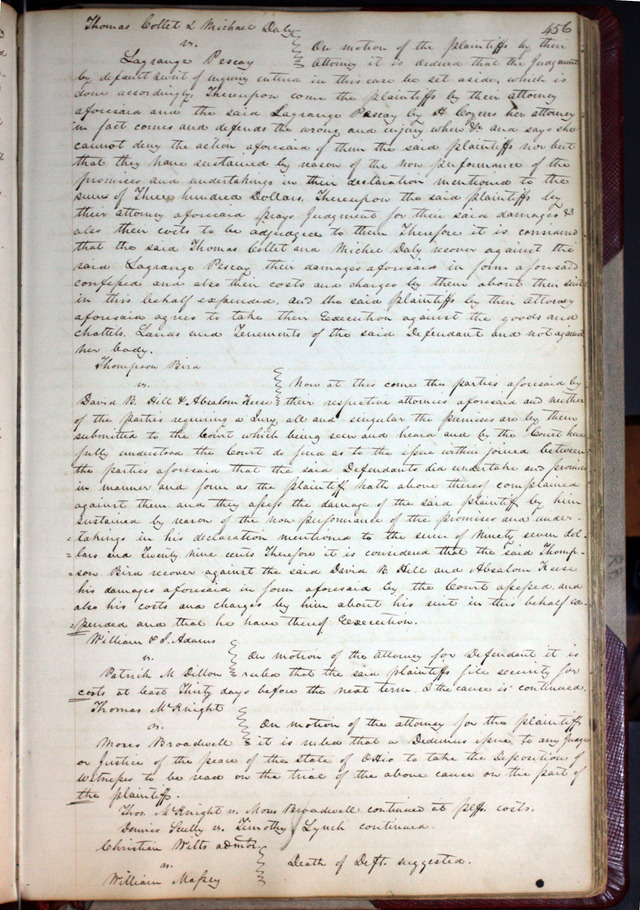 456
Thomas Collet & Michael Daly
vs. On motion of the plaintiffs by their
Lagrange Pescay attorney it is ordered that the Judgment
by default & writ of inquiry entered in this case be set aside, which is
done accordingly. Thereupon come the plaintiffs by their attorney
aforesaid and the said Lagrange Pescay by H Cozens her attorney
in fact comes and defends the wrong and injury when &c and says she
cannot deny the action aforesaid of them the said plaintiffs nor but
that they have sustained by reason of the non performance of the
promises and undertakings in their declaration mentioned to the
sum of Three hundred Dollars. Thereupon the said plaintiffs by
their attorney aforesaid prays Judgment for their said damages &
also their costs to be adjudged to them Therefore it is considered
that the said Thomas Collet and Michee Daly recover against the
said Lagrange Pescay their damages aforesaid in form aforesaid
confessed and also their costs and charges by them about their suit
in this behalf expended, and the said plaintiffs by their attorney
aforesaid agrees to take their Execution against the goods and
chattels, Lands and Tenements of the said Defendant and not against
her body.
Thompson Bird
vs. Now at this come the parties aforesaid by
David B. Hill & Absalom Keese their respective attornies aforesaid and neither
of the parties requiring a Jury all and singular the premises are by them
submitted to the Court which being seen and heard and by the Court here
fully understood the Court do find as to the issue within joined between
the parties aforesaid that the said Defendants did undertake and promise
in manner and form as the plaintiff hath above thereof complained
against them and they assess the damage of the said plaintiff by him
sustained by reason of the non performance of the promises and under-
takings in his declaration mentioned to the sum of Ninety seven dol-
lars and Twenty nine cents Therefore it is considered that the said Thomp-
son Bird recover against the said David B Hill and Absalom Keese
his damages aforesaid in form aforesaid by the Court assessed and
also his costs and charges by him about his suit in this behalf ex-
pended and that he have thereof Execution.
William & S. Adams
vs. On motion of the attorney for Defendant it is
Patrick M. Dillon ruled that the said plaintiffs file security for
costs at least Thirty days before the next term & the cause is continued.
Thomas McKnight
vs. On motion of the attorney for the plaintiff
Moses Broadwell it is ruled that a Dedimus issue to any Judge
or Justice of the peace of the state of Ohio to take the Deposition of
witnesses to be read on the trial of the above cause on the part of
the plaintiff.
Thos. McKnight vs. Moses Broadwell continued at plffs. costs.
Dennis Scully vs. Timothy Lynch continued.
Christian Wilts admtor.
vs. Death of Deft. suggested.
William Massey